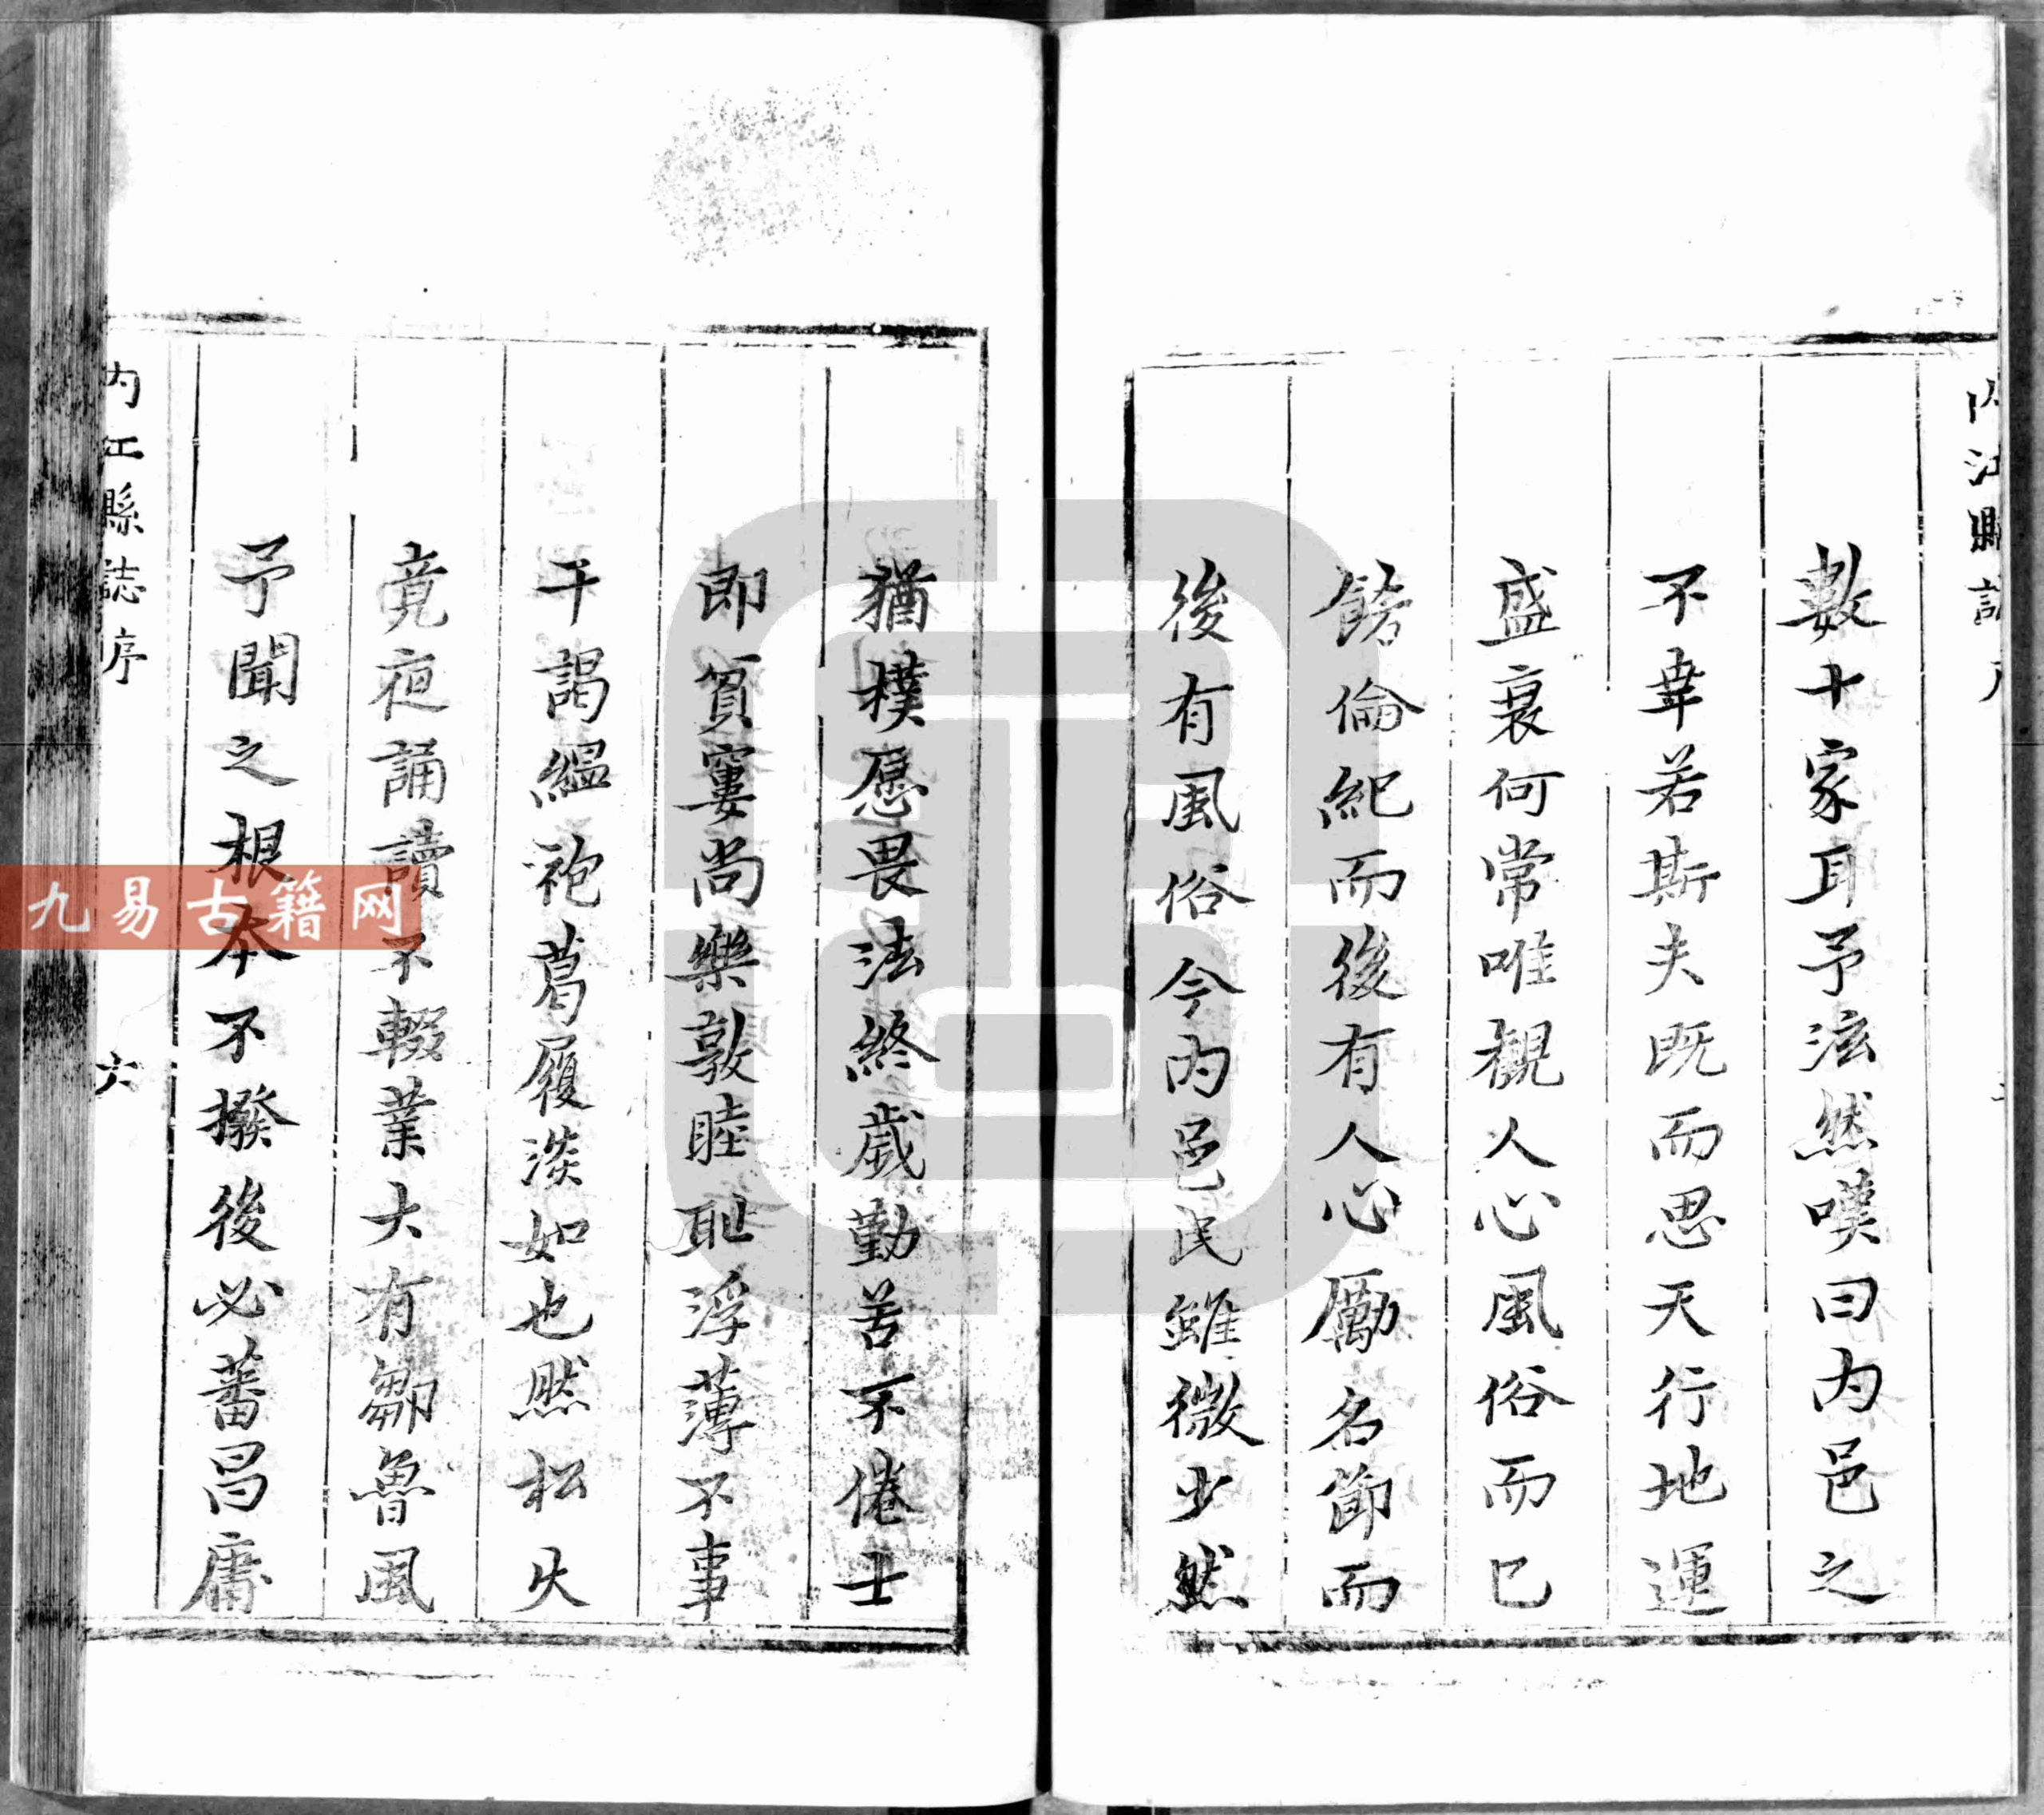 內江縣誌序
數十家耳予泫然嘆曰內邑之
不幸若斯夫既而思天行地運
盛衰何常唯觀人心風俗而已
飭倫紀而後有人心勵名節而
後有風俗今內邑民雖微少然
猶樸愿畏法終歲勤苦不倦士
即貧窶尚樂敦睦恥浮薄不事
干謁縕袍葛屨淡如也然松火
竟夜誦讀不輟業大有鄒魯風
予聞之根本不撥後必蕃昌庸
內江縣誌序
六
九易古籍网